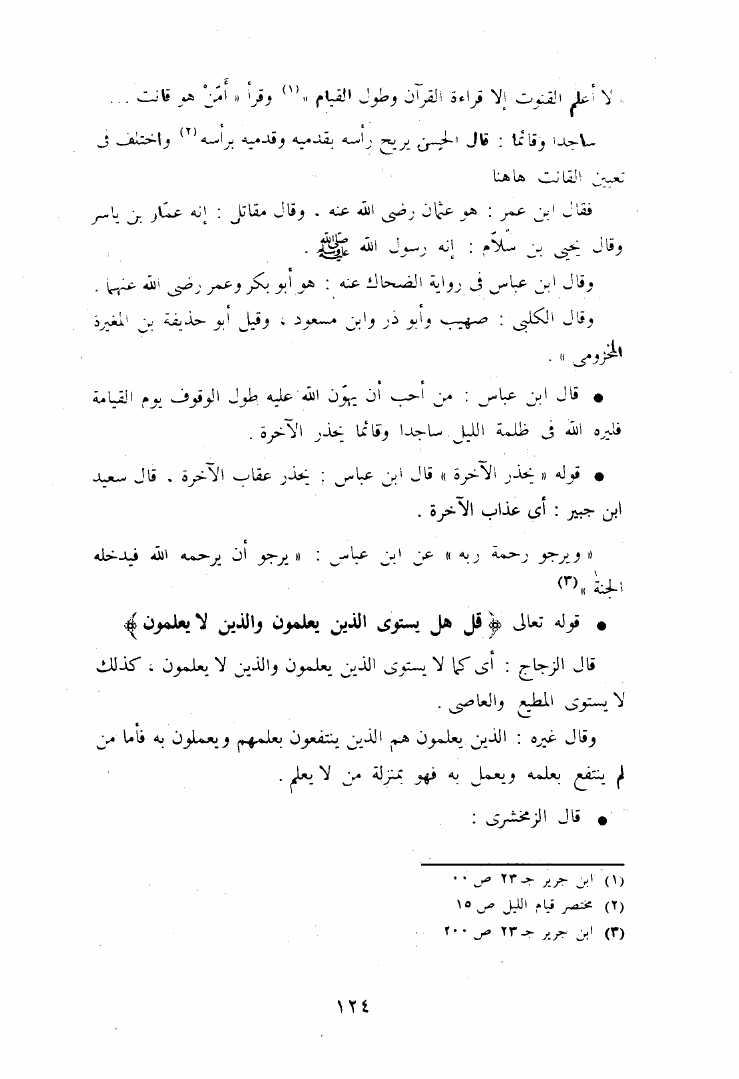 لا أعلم القنوت إلا قراءة القرآن وطول القيام »(١) وقرأ « أَمَّنْ هو قانت ...
ساجدا وقائما : قال الحسن يريح رأسه بقدميه وقدميه برأسه(٢) واختلف فى
تعيين القانت هاهنا
فقال ابن عمر : هو عثمان رضى الله عنه . وقال مقاتل : إنه عمّار بن ياسر
وقال يحيى بن سّلام : إنه رسول الله ﷺ .
وقال ابن عباس فى رواية الضحاك عنه : هو أبو بكر وعمر رضى الله عنهما .
وقال الكلبى : صهيب وأبو ذر وابن مسعود ، وقيل أبو حذيفة بن المغيرة
المخزومى » .
● قال ابن عباس : من أحب أن يهوّن الله عليه طول الوقوف يوم القيامة
فليره الله فى ظلمة الليل ساجدا وقائما يحذر الآخرة .
● قوله « يحذر الآخرة » قال ابن عباس : يحذر عقاب الآخرة . قال سعيد
ابن جبير : أى عذاب الآخرة .
« ويرجو رحمة ربه » عن ابن عباس : « يرجو أن يرحمه الله فيدخله
الجنة »(٣)
● قوله تعالى ﴿ قل هل يستوى الذين يعلمون والذين لا يعلمون ﴾
قال الزجاج : أى كما لا يستوى الذين يعلمون والذين لا يعلمون ، كذلك
لا يستوى المطيع والعاصى .
وقال غيره : الذين يعلمون هم الذين ينتفعون بعلمهم ويعملون به فأما من
لم ينتفع بعلمه ويعمل به فهو بمنزلة من لا يعلم .
● قال الزمخشرى :
(١) ابن جرير جـ ٢٣ ص ٠٠
(٢) مختصر قيام الليل ص ١٥
(٣) ابن جرير جـ ٢٣ ص ٢٠٠
١٢٤